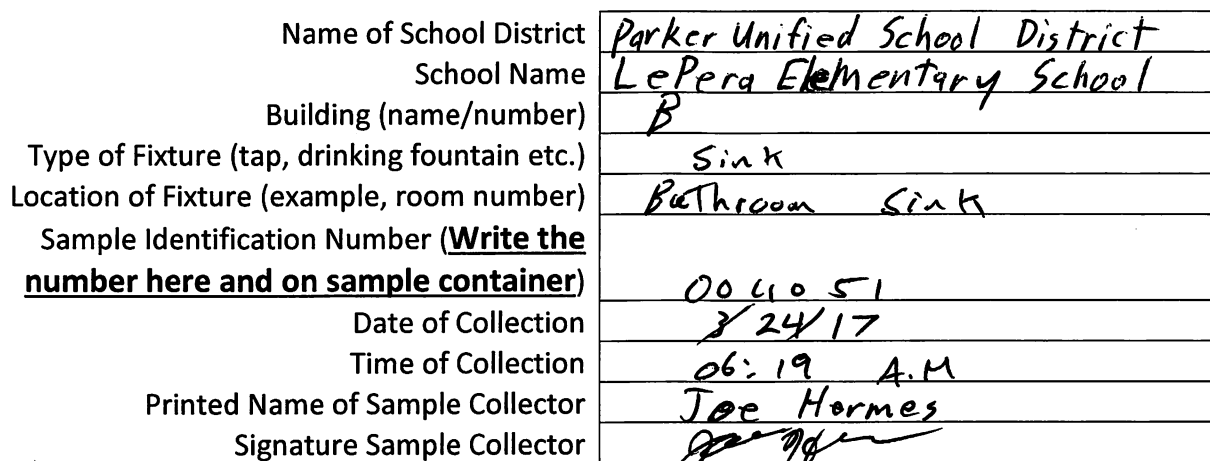 Name of School District Parker Unified School District
School Name LePera Elementary School
Building (name/number) B
Type of Fixture (tap, drinking fountain etc.) Sink
Location of Fixture (example, room number) Bathroom Sink
Sample Identification Number (Write the
number here and on sample container) 004051
Date of Collection 3/24/17
Time of Collection 06:19 A.M
Printed Name of Sample Collector Joe Hormes
Signature Sample Collector